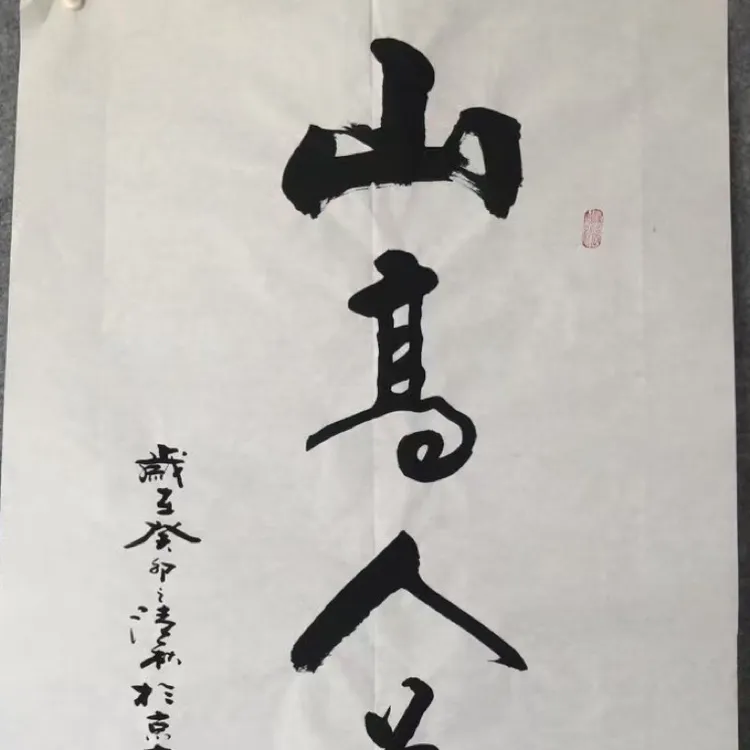 山高人
歲在癸卯之清秋於京